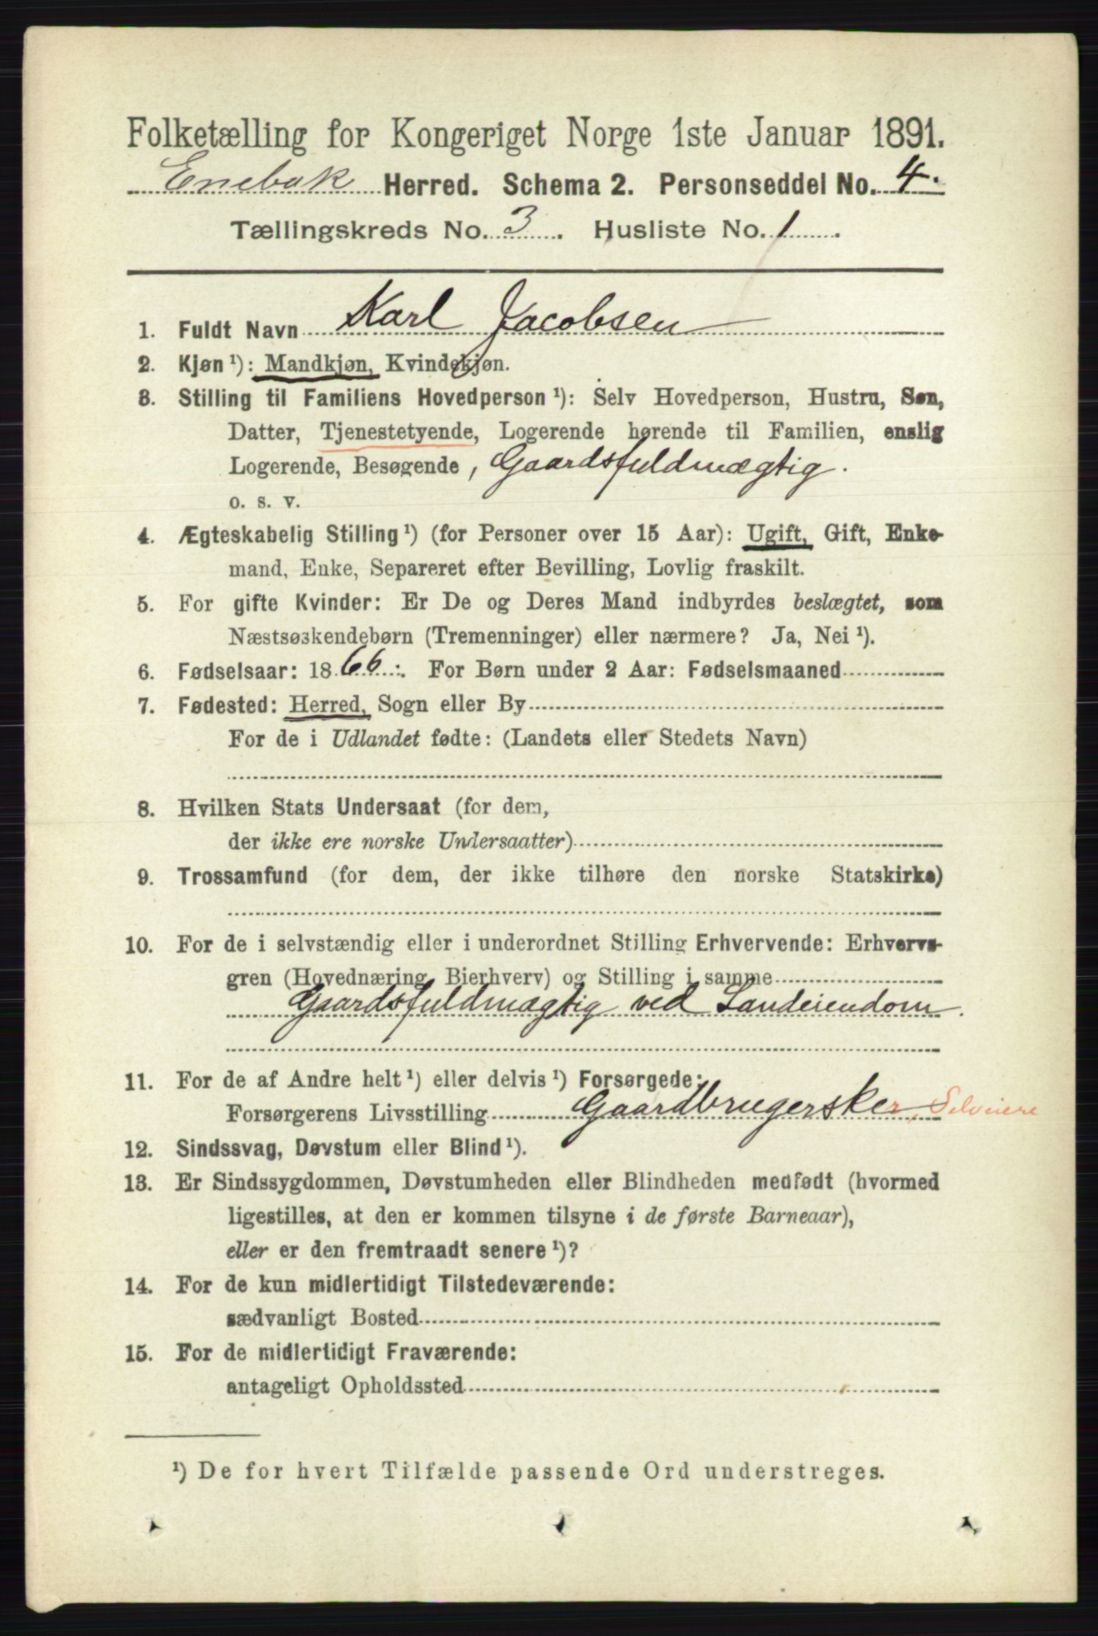 Folketælling for Kongeriget Norge 1ste Januar 1891.
Enebak Herred. Schema 2. Personseddel No. 4.
Tællingskreds No. 3. Husliste No. 1.
1. Fuldt Navn Karl Jacobsen
2. Kjøn ¹): Mandkjøn, Kvindekjøn.
3. Stilling til Familiens Hovedperson ¹): Selv Hovedperson, Hustru, Søn,
Datter, Tjenestetyende, Logerende hørende til Familien, enslig
Logerende, Besøgende, Gaardsfuldmægtig.
o. s. v.
4. Ægteskabelig Stilling ¹) (for Personer over 15 Aar): Ugift, Gift, Enke-
mand, Enke, Separeret efter Bevilling, Lovlig fraskilt.
5. For gifte Kvinder: Er De og Deres Mand indbyrdes beslægtet, som
Næstsøskendebørn (Tremenninger) eller nærmere? Ja, Nei ¹).
6. Fødselsaar: 1866. For Børn under 2 Aar: Fødselsmaaned
7. Fødested: Herred, Sogn eller By
For de i Udlandet fødte: (Landets eller Stedets Navn)
8. Hvilken Stats Undersaat (for dem,
der ikke ere norske Undersaatter)
9. Trossamfund (for dem, der ikke tilhøre den norske Statskirke)
10. For de i selvstændig eller i underordnet Stilling Erhvervende: Erhvervs-
gren (Hovednæring, Bierhverv) og Stilling i samme
Gaardsfuldmægtig ved Landeiendom.
11. For de af Andre helt ¹) eller delvis ¹) Forsørgede:
Forsørgerens Livsstilling Gaardbrugerske, Selveiere
12. Sindssvag, Døvstum eller Blind ¹).
13. Er Sindssygdommen, Døvstumheden eller Blindheden medfødt (hvormed
ligestilles, at den er kommen tilsyne i de første Barneaar),
eller er den fremtraadt senere ¹)?
14. For de kun midlertidigt Tilstedeværende:
sædvanligt Bosted
15. For de midlertidigt Fraværende:
antageligt Opholdssted
¹) De for hvert Tilfælde passende Ord understreges.